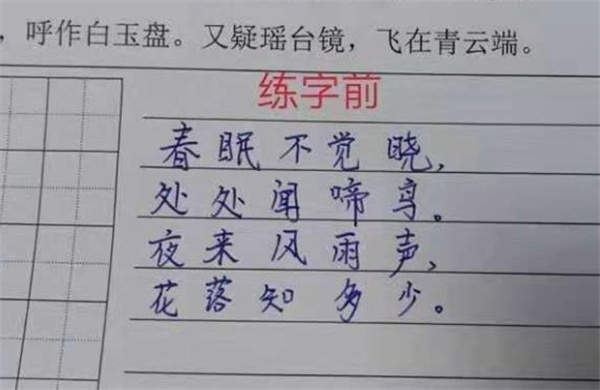 ，呼作白玉盘。又疑瑶台镜，飞在青云端。
练字前
春眠不觉晓，
处处闻啼鸟。
夜来风雨声，
花落知多少。